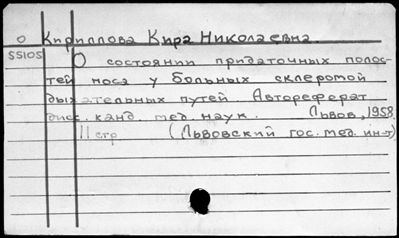 О Кириллова Кира Николаевна.
SS10S О состоянии придаточных полос-
тей носа у больных склеромой
дыхательных путей. Автореферат
дисс. канд. мед. наук. Львов, 1958.
11 стр (Львовский гос. мед. ин-т)